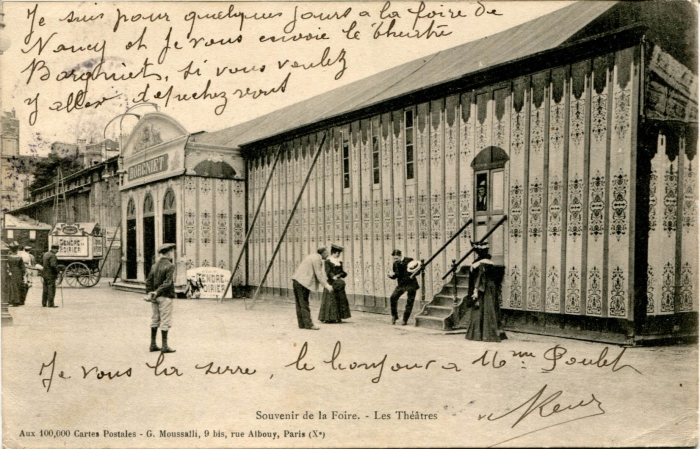 Je suis pour quelques jours a la foire de
Nancy et Je vous envoie le theatre
Bargniet, si vous voulez
y aller depechez vous
BORGNIET
GENDRE
POIRIER
GENDRE
POIRIER
Je vous la serre, le bonjour a Mme Poulet
Souvenir de la Foire. - Les Théâtres
Aux 100,000 Cartes Postales - G. Moussalli, 9 bis, rue Albouy, Paris (Xe)